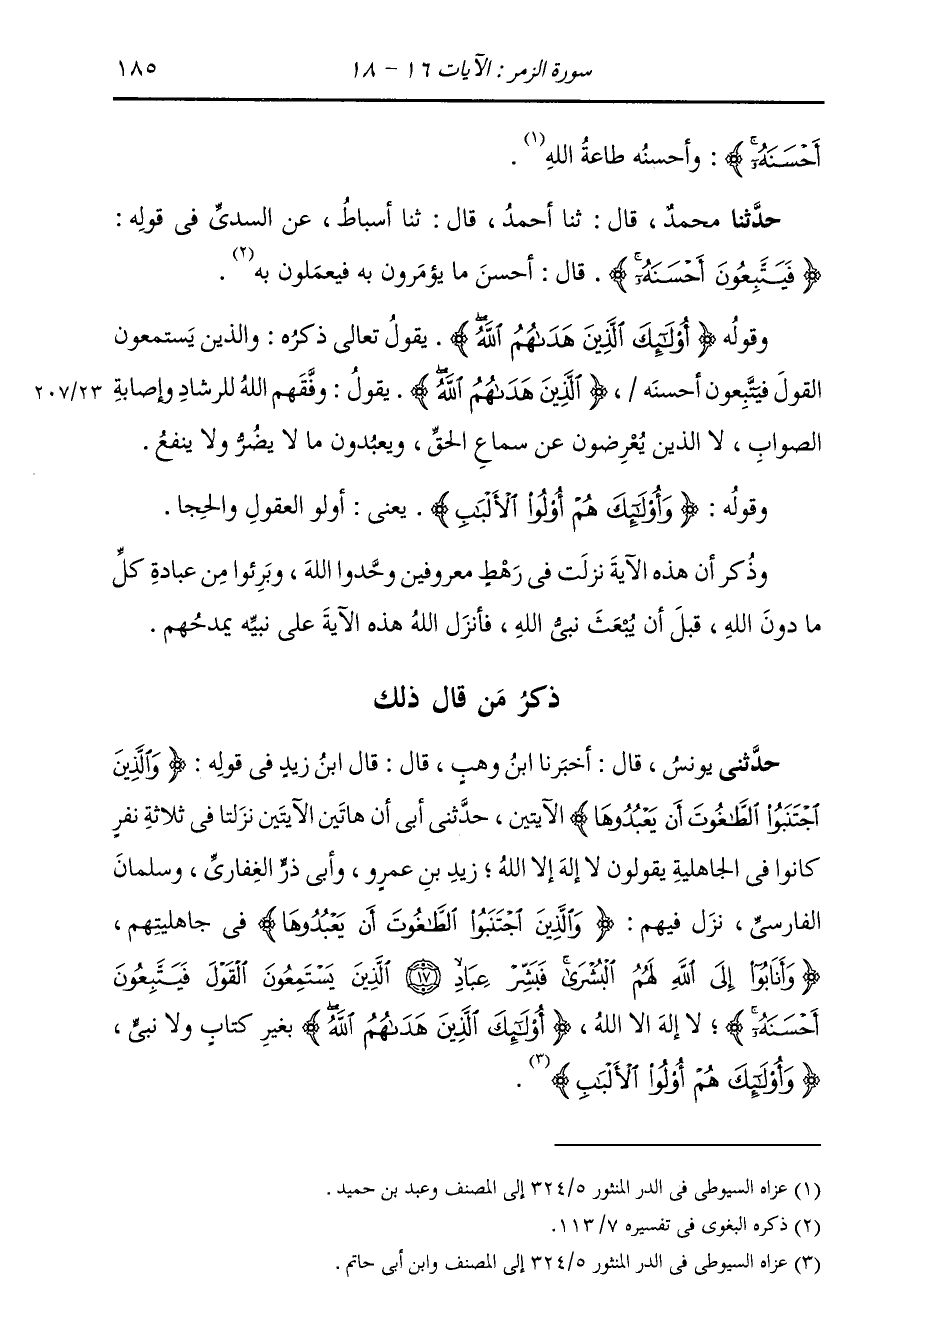 سورة الزمر : الآيات ١٦ - ١٨ ١٨٥
أَحْسَنَهُۥٓۚ ﴾ : وأحسنُه طاعةُ اللهِ(١) .
حدَّثنا محمدٌ ، قال : ثنا أحمدُ ، قال : ثنا أسباطُ ، عن السدىِّ فى قولِه :
﴿ فَيَتَّبِعُونَ أَحْسَنَهُۥٓۚ ﴾ . قال : أحسنَ ما يؤمَرون به فيعمَلون به(٢) .
وقولُه ﴿ أُوْلَـٰٓئِكَ ٱلَّذِينَ هَدَىٰهُمُ ٱللَّهُۖ ﴾ . يقولُ تعالى ذكرُه : والذين يَستمعون
القولَ فيَتَّبِعون أحسنَه / ، ﴿ ٱلَّذِينَ هَدَىٰهُمُ ٱللَّهُۖ ﴾ . يقولُ : وفَّقَهم اللهُ للرشادِ وإصابةِ ٢٠٧/٢٣
الصوابِ ، لا الذين يُعْرِضون عن سماعِ الحقِّ ، ويعبُدون ما لا يضُرُّ ولا ينفعُ .
وقولُه : ﴿ وَأُوْلَـٰٓئِكَ هُمْ أُوْلُواْ ٱلْأَلْبَـٰبِ ﴾ . يعنى : أولو العقولِ والحِجا .
وذُكر أن هذه الآيةَ نزلَت فى رَهْطٍ معروفين وحَّدوا اللهَ ، وبَرِئوا مِن عبادةِ كلِّ
ما دونَ اللهِ ، قبلَ أن يُبْعَثَ نبىُّ اللهِ ، فأنزَل اللهُ هذه الآيةَ على نبيِّه يمدحُهم .
ذكرُ مَن قال ذلك
حدَّثنى يونسُ ، قال : أخبَرنا ابنُ وهبٍ ، قال : قال ابنُ زيدٍ فى قولِه : ﴿ وَٱلَّذِينَ
ٱجْتَنَبُواْ ٱلطَّـٰغُوتَ أَن يَعْبُدُوهَا ﴾ الآيتين ، حدَّثنى أبى أن هاتَين الآيتَين نزَلتا فى ثلاثةِ نفرٍ
كانوا فى الجاهليةِ يقولون لا إلهَ إلا اللهُ ؛ زيدِ بنِ عمرٍو ، وأبى ذرٍّ الغِفارىِّ ، وسلمانَ
الفارسىِّ ، نزَل فيهم : ﴿ وَٱلَّذِينَ ٱجْتَنَبُواْ ٱلطَّـٰغُوتَ أَن يَعْبُدُوهَا ﴾ فى جاهليتِهم ،
﴿ وَأَنَابُوٓاْ إِلَى ٱللَّهِ لَهُمُ ٱلْبُشْرَىٰۚ فَبَشِّرْ عِبَادِۙ ١٧ ٱلَّذِينَ يَسْتَمِعُونَ ٱلْقَوْلَ فَيَتَّبِعُونَ
أَحْسَنَهُۥٓۚ ﴾ ؛ لا إلهَ الا اللهُ ، ﴿ أُوْلَـٰٓئِكَ ٱلَّذِينَ هَدَىٰهُمُ ٱللَّهُۖ ﴾ بغيرِ كتابٍ ولا نبىٍّ ،
﴿ وَأُوْلَـٰٓئِكَ هُمْ أُوْلُواْ ٱلْأَلْبَـٰبِ ﴾(٣) .
(١) عزاه السيوطى فى الدر المنثور ٣٢٤/٥ إلى المصنف وعبد بن حميد .
(٢) ذكره البغوى فى تفسيره ١١٣/٧.
(٣) عزاه السيوطى فى الدر المنثور ٣٢٤/٥ إلى المصنف وابن أبى حاتم .